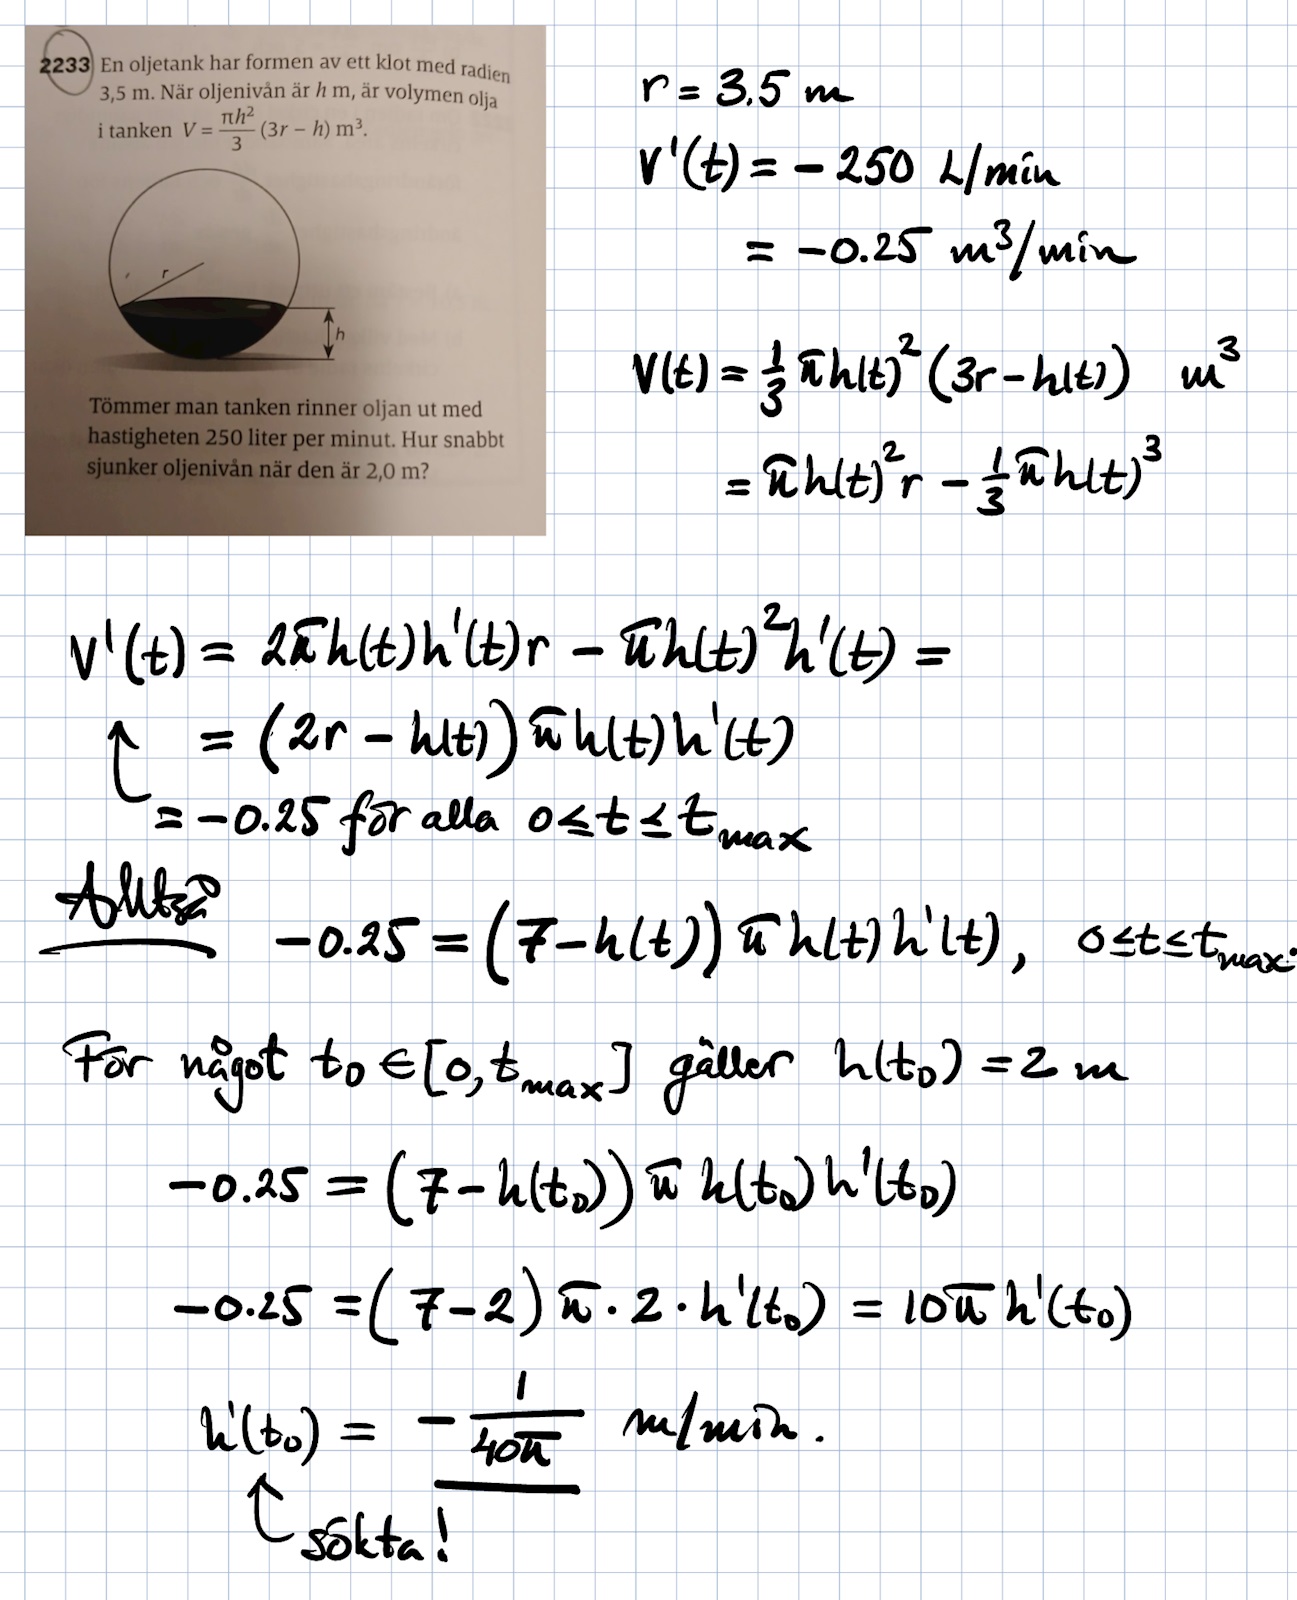 2233 En oljetank har formen av ett klot med radien
3,5 m. När oljenivån är h m, är volymen olja
i tanken V = πh²/3 (3r − h) m³.
r
h
Tömmer man tanken rinner oljan ut med
hastigheten 250 liter per minut. Hur snabbt
sjunker oljenivån när den är 2,0 m?
r = 3.5 m
V'(t) = −250 L/min
= −0.25 m³/min
V(t) = 1/3 πh(t)² (3r − h(t)) m³
= πh(t)² r − 1/3 πh(t)³
V'(t) = 2πh(t)h'(t)r − πh(t)²h'(t) =
= (2r − h(t)) π h(t) h'(t)
= −0.25 för alla 0 ≤ t ≤ t_max
Alltså −0.25 = (7 − h(t)) π h(t) h'(t), 0 ≤ t ≤ t_max.
För något t₀ ∈ [0, t_max] gäller h(t₀) = 2 m
−0.25 = (7 − h(t₀)) π h(t₀) h'(t₀)
−0.25 = (7 − 2) π · 2 · h'(t₀) = 10π h'(t₀)
h'(t₀) = − 1/40π m/min.
sökta!